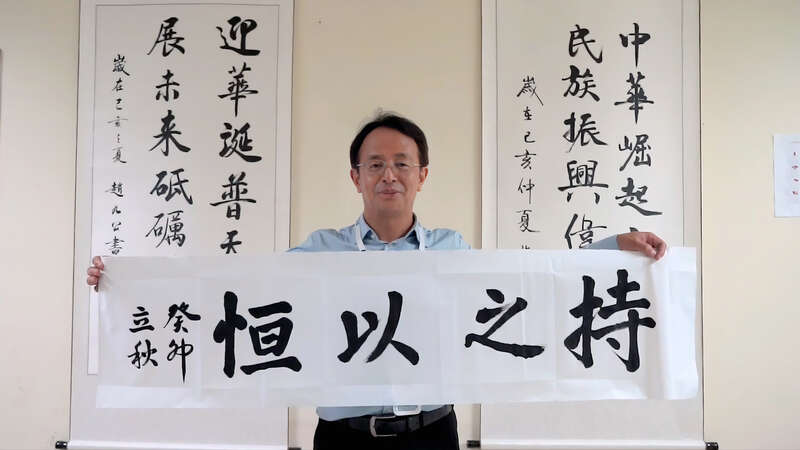 中華崛起
民族振興偉
歲在己亥仲夏
迎華誕普天
展未来砥礪
歲在己亥之夏 趙公書
持之以恒
癸卯
立秋